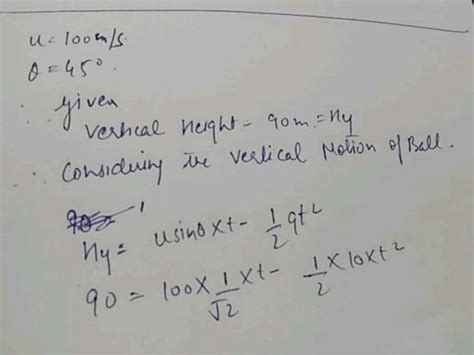 u = 100m/s.
θ = 45°.
∴ given
Vertical Height - 90m = Hy
∴ Considering the vertical Motion of Ball.
Hy = usinθ x t - 1/2 gt²
90 = 100 x 1/√2 x t - 1/2 x 10 x t²